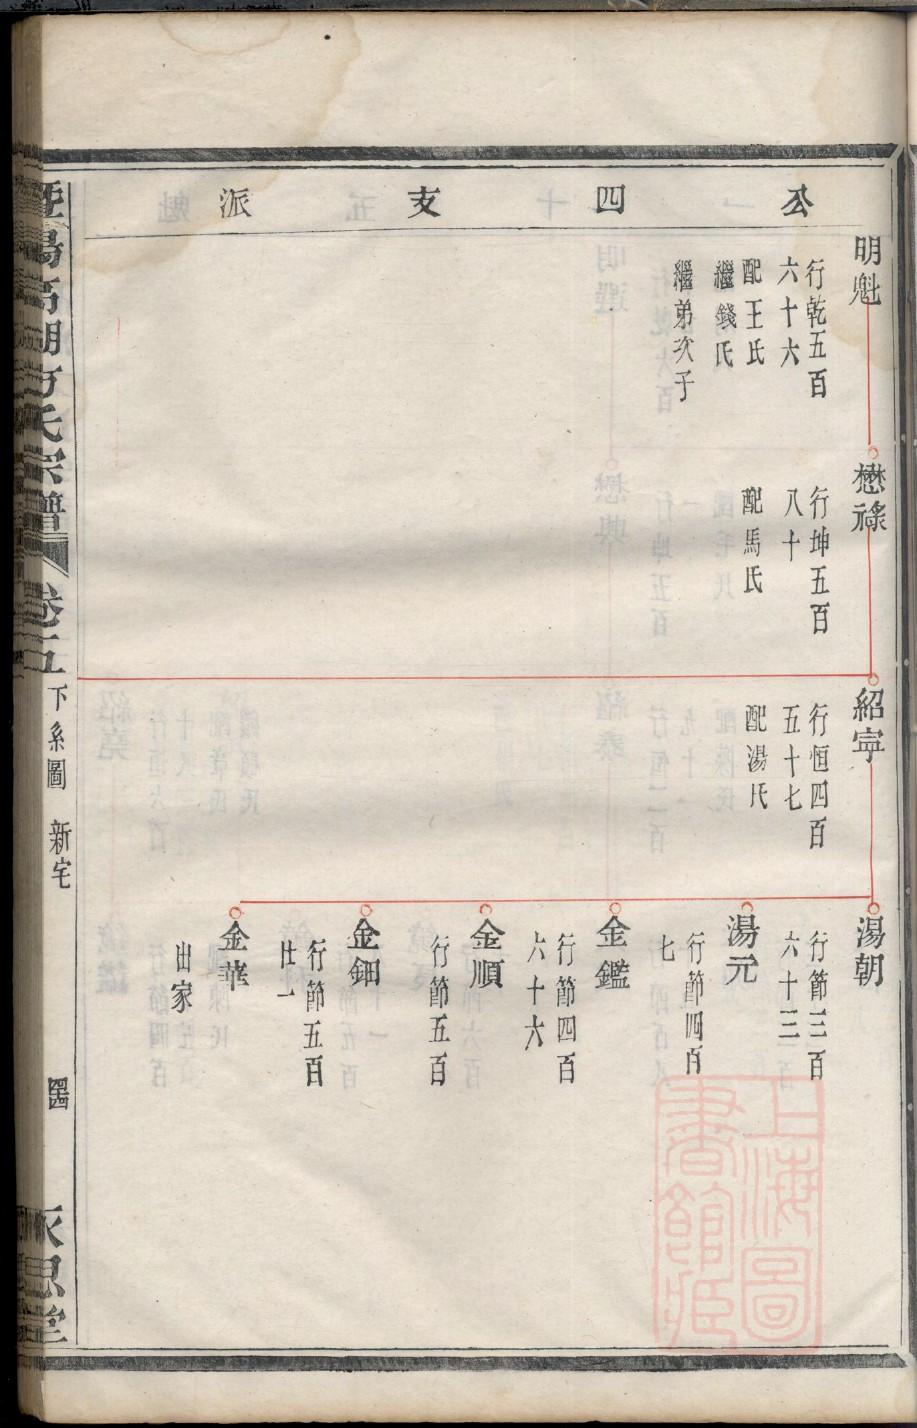 公四支派
明魁
行乾五百
六十六
配王氏
繼錢氏
繼弟次子
懋祿
行坤五百
八十
配馬氏
紹寜
行恒四百
五十七
配湯氏
湯朝
行節三百
六十三
湯元
行節四百
七
金鑑
行節四百
六十六
金順
行節五百
金鈿
行節五百
廿一
金華
出家
暨陽高湖方氏宗譜
卷五
下系圖
新宅
永思堂
上海圖
書館藏